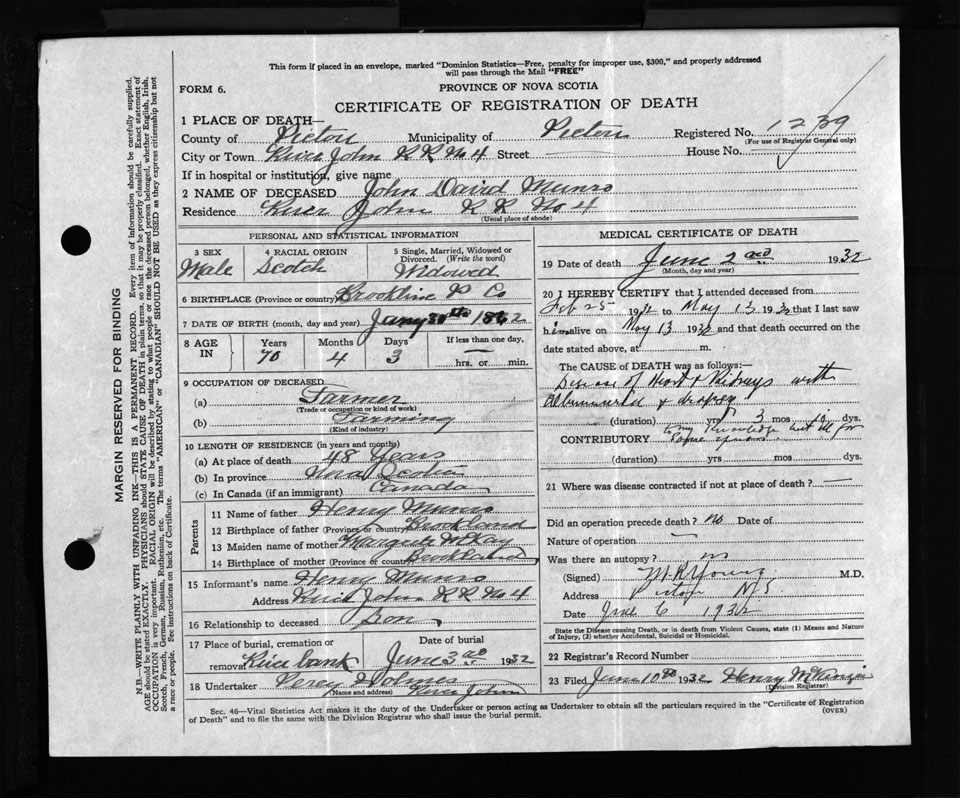 This form if placed in an envelope, marked "Dominion Statistics—Free, penalty for improper use, $300," and properly addressed
will pass through the Mail "FREE"
FORM 6.
PROVINCE OF NOVA SCOTIA
CERTIFICATE OF REGISTRATION OF DEATH
1 PLACE OF DEATH—
County of Pictou Municipality of Pictou Registered No. 1239
(For use of Registrar General only)
City or Town River John R R No 4 Street House No.
If in hospital or institution, give name
2 NAME OF DECEASED John David Munro
Residence River John R R No 4
(Usual place of abode)
PERSONAL AND STATISTICAL INFORMATION
3 SEX Male
4 RACIAL ORIGIN Scotch
5 Single, Married, Widowed or Divorced. (Write the word) Widowed
6 BIRTHPLACE (Province or country) P. Co
7 DATE OF BIRTH (month, day and year) Jany 30th 1862
8 AGE IN Years 70 Months 4 Days 3 If less than one day, hrs. or min.
9 OCCUPATION OF DECEASED
(a) Farmer
(Trade or occupation or kind of work)
(b) Farming
(Kind of industry)
10 LENGTH OF RESIDENCE (in years and months)
(a) At place of death 48 Years
(b) In province Nova Scotia
(c) In Canada (if an immigrant) Canada
Parents
11 Name of father Henry Munro
12 Birthplace of father (Province or country) Brookland
13 Maiden name of mother McKay
14 Birthplace of mother (Province or country) Brookland
15 Informant's name Henry Munro
Address River John R R No 4
16 Relationship to deceased Son
17 Place of burial, cremation or removal River bank Date of burial June 3rd 1932
18 Undertaker Percy Holmes
(Name and address) River John
MEDICAL CERTIFICATE OF DEATH
19 Date of death June 2nd 1932
(Month, day and year)
20 I HEREBY CERTIFY that I attended deceased from
Feb 25 1932 to May 13 1932 that I last saw
him alive on May 13 1932 and that death occurred on the
date stated above, at m.
The CAUSE OF DEATH was as follows:—
Disease of Heart & Kidneys with
& dropsy
(duration) yrs 3 mos dys.
to my knowledge but ill for
CONTRIBUTORY some years
(duration) yrs mos dys.
21 Where was disease contracted if not at place of death? —
Did an operation precede death? no Date of
Nature of operation —
Was there an autopsy? no
(Signed) M.R. Young M.D.
Address Pictou N.S.
Date June 6 1932
State the Disease causing Death, or in death from Violent Causes, state (1) Means and Nature
of Injury, (2) whether Accidental, Suicidal or Homicidal.
22 Registrar's Record Number
23 Filed June 10th 1932 Henry
(Division Registrar)
Sec. 46—Vital Statistics Act makes it the duty of the Undertaker or person acting as Undertaker to obtain all the particulars required in the "Certificate of Registration
of Death" and to file the same with the Division Registrar who shall issue the burial permit.
(OVER)
MARGIN RESERVED FOR BINDING
N.B.—WRITE PLAINLY WITH UNFADING INK—THIS IS A PERMANENT RECORD. Every item of information should be carefully supplied.
AGE should be stated EXACTLY. PHYSICIANS should STATE CAUSE OF DEATH in plain terms, so that it may be properly classified. Exact statement of
OCCUPATION is very important. RACIAL ORIGIN will be described by stating to what people or race the deceased person belonged, whether English, Irish,
Scotch, French, German, Russian, Ruthenian, etc. The terms "AMERICAN" or "CANADIAN" SHOULD NOT BE USED as they express citizenship but not
a race or people. See instructions on back of Certificate.